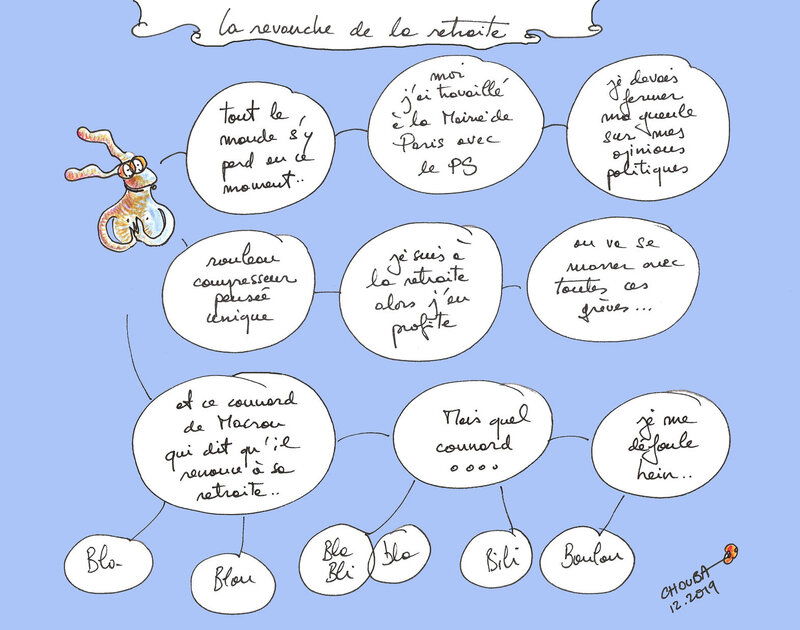 La revanche de la retraite
tout le
monde s'y
perd en ce
moment..
moi
j'ai travaillé
à la Mairie de
Paris avec
le PS
je devais
fermer
ma gueule
sur mes
opinions
politiques
rouleau
compresseur
pensée
unique
je suis à
la retraite
alors j'en
profite
on va se
marrer avec
toutes ces
grèves...
et ce connard
de Macron
qui dit qu'il
renonce à sa
retraite..
Mais quel
connard
....
je me
défoule
hein..
Bla
Blou
Bla
Bli
bla
Bili
Boulou
CHOUBA
12.2019